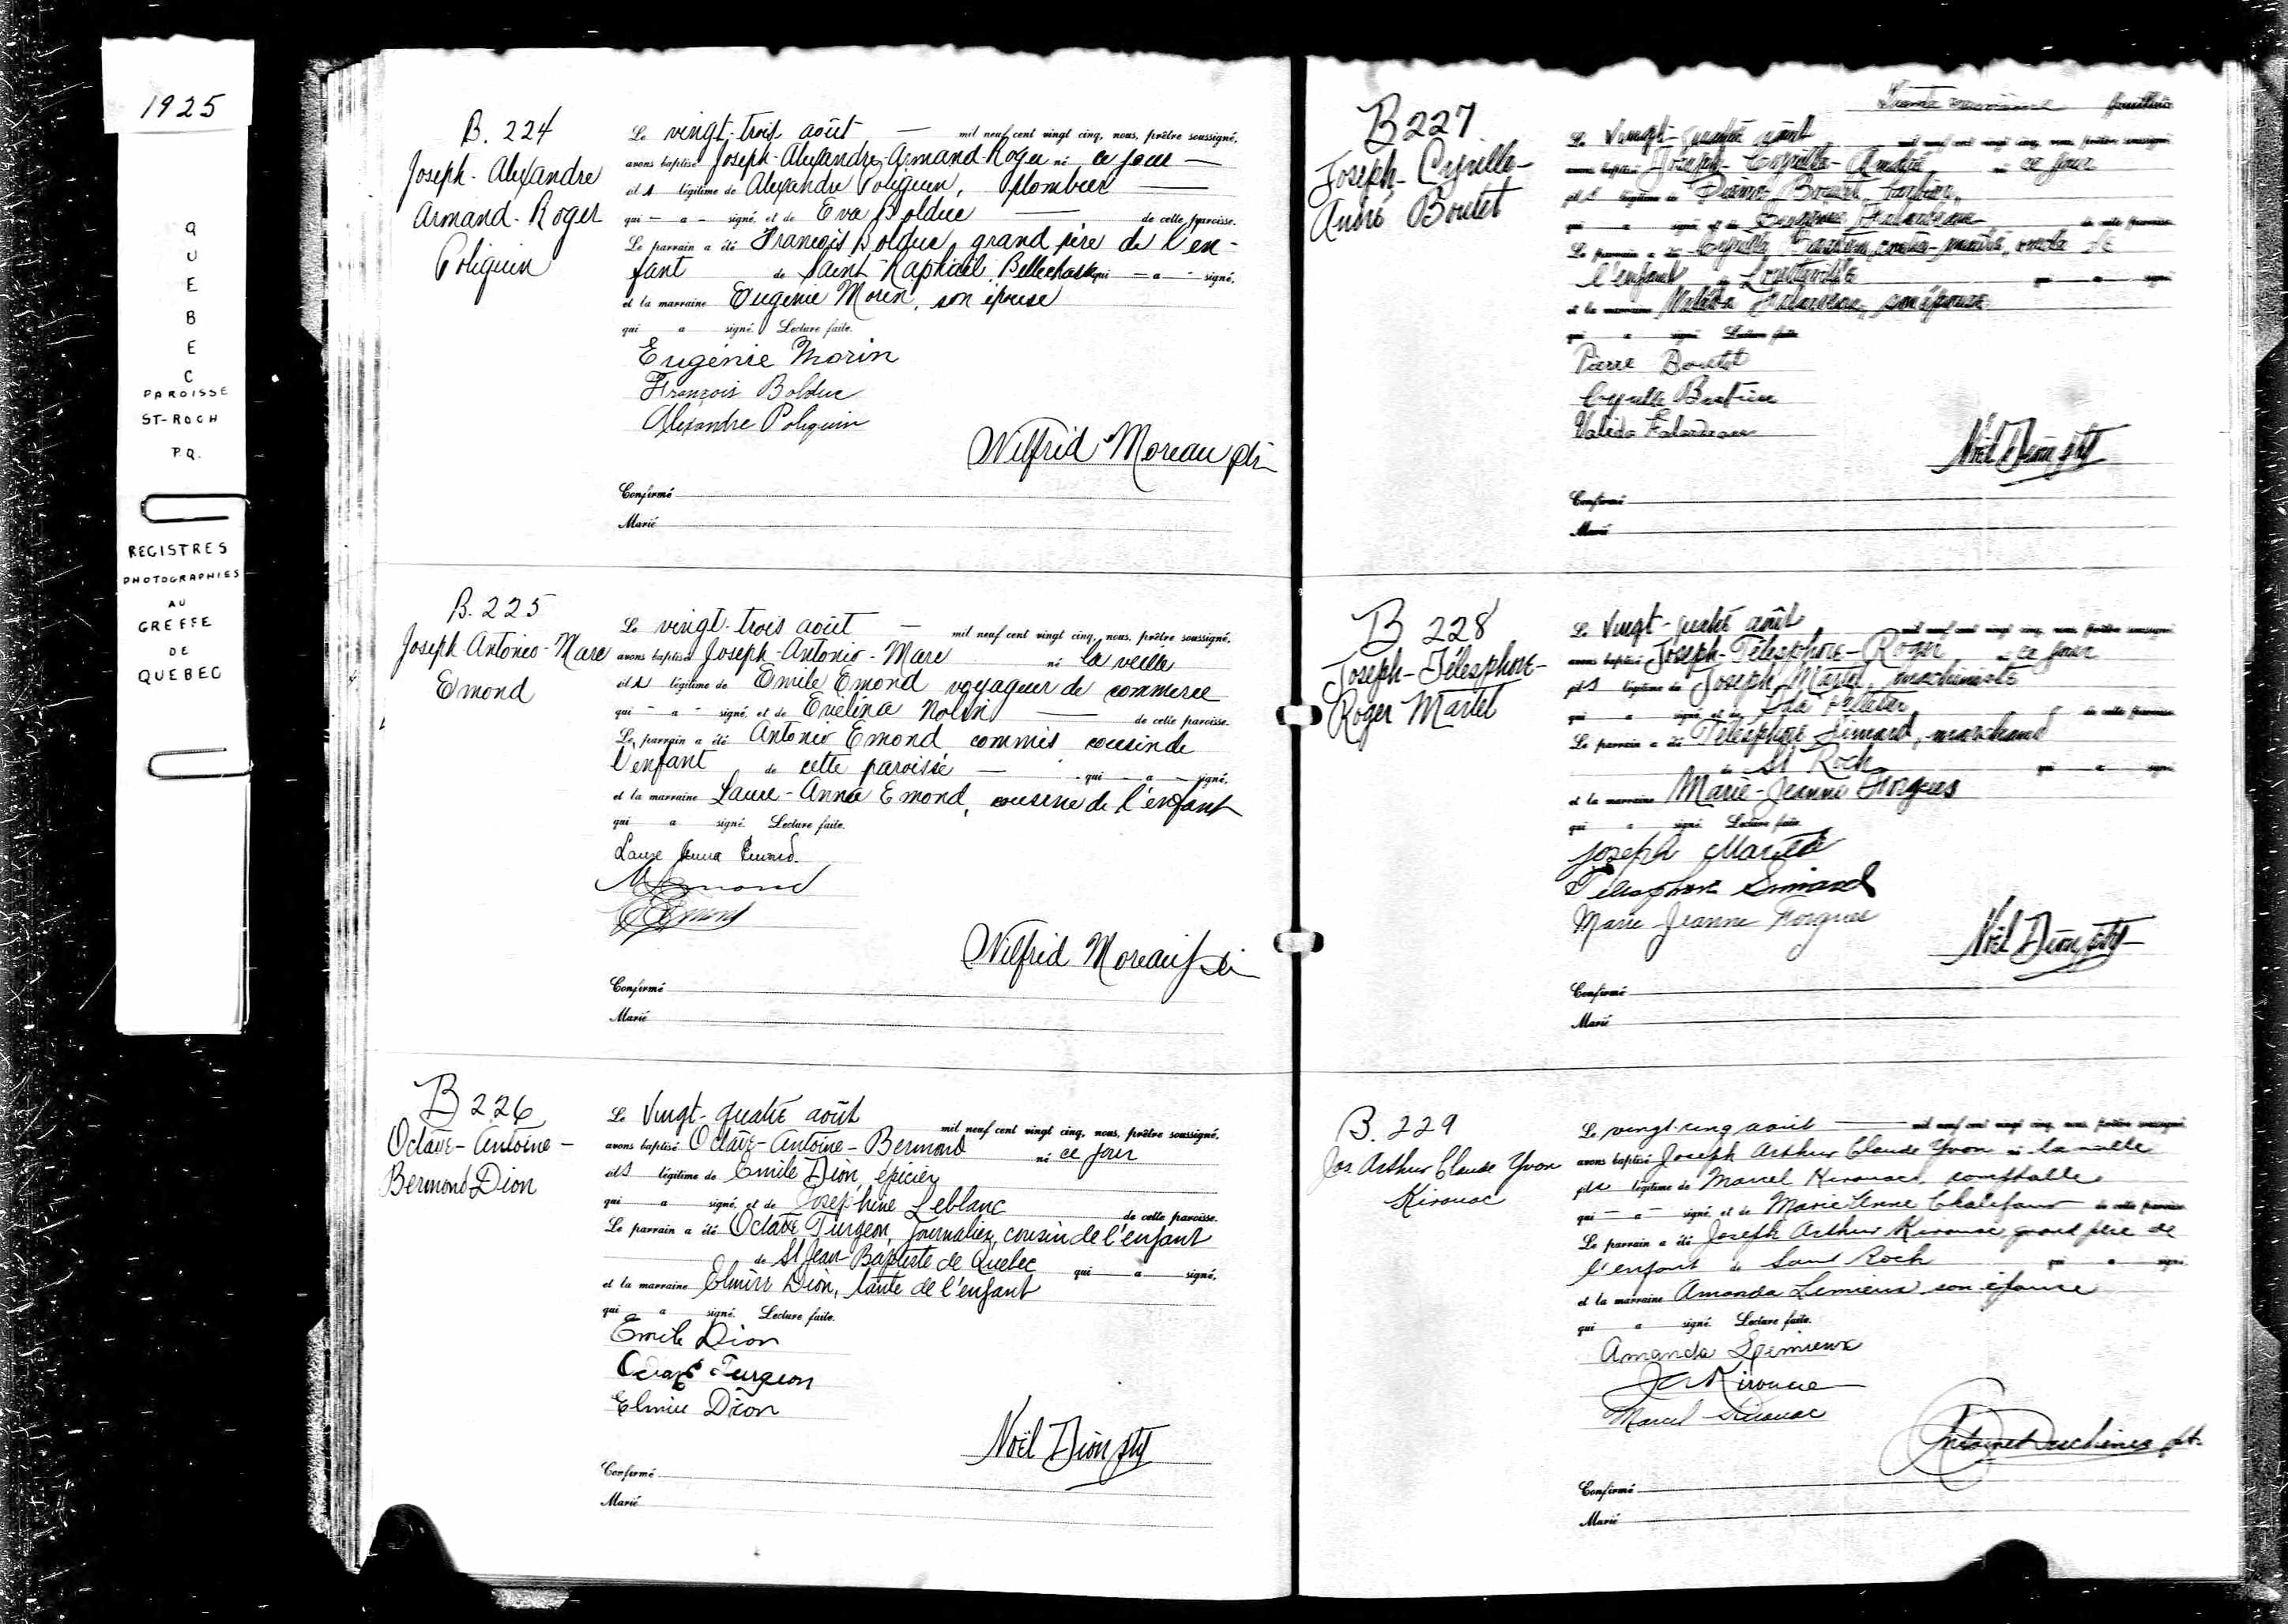 1925
QUEBEC
PAROISSE
ST-ROCH
P.Q.
REGISTRES
PHOTOGRAPHIES
AU
GREFFE
DE
QUEBEC
B. 224
Joseph-Alexandre
Armand-Roger
Poliquin
Le vingt-trois août — mil neuf cent vingt cinq, nous, prêtre soussigné,
avons baptisé Joseph-Alexandre-Armand Roger né ce jour —
fils légitime de Alexandre Poliquin, plombier —
qui — a — signé, et de Eva Bolduc — de cette paroisse.
Le parrain a été François Bolduc, grand père de l'en-
fant de Saint Raphaël Bellechasse qui — a — signé,
et la marraine Eugénie Morin, son épouse
qui a signé. Lecture faite.
Eugénie Morin
François Bolduc
Alexandre Poliquin
Wilfrid Moreau ptr
Confirmé
Marié
B. 225
Joseph-Antonio-Marc
Emond
Le vingt-trois août — mil neuf cent vingt cinq, nous, prêtre soussigné,
avons baptisé Joseph-Antonio-Marc né la veille
fils légitime de Emile Emond voyageur de commerce
qui — a — signé, et de Evélina Nolin — de cette paroisse.
Le parrain a été Antonio Emond commis cousin de
l'enfant de cette paroisse — qui — a — signé,
et la marraine Laure-Anna Emond, cousine de l'enfant
qui a signé. Lecture faite.
Laure Anna Emond.
Emond
E Emond
Wilfrid Moreau ptr
Confirmé
Marié
B 226
Octave-Antoine-
Bermond Dion
Le Vingt-quatre août mil neuf cent vingt cinq, nous, prêtre soussigné,
avons baptisé Octave-Antoine-Bermond né ce jour
fils légitime de Emile Dion, épicier
qui a signé, et de Joséphine Leblanc de cette paroisse.
Le parrain a été Octave Turgeon, journalier, cousin de l'enfant
de St Jean-Baptiste de Québec qui a signé,
et la marraine Elmire Dion, tante de l'enfant
qui a signé. Lecture faite.
Emile Dion
Octave Turgeon
Elmire Dion
Noël Dion ptr
Confirmé
Marié
feuillet
B 227
Joseph-Cyrille-
André Boutet
Le Vingt-quatre août mil neuf cent vingt cinq, nous, prêtre soussigné
avons baptisé Joseph-Cyrille-André né ce jour
fils légitime de Pierre Boutet
qui a signé, et de Falardeau de cette paroisse
Le parrain a été Cyrille oncle de
l'enfant de Loretteville qui a signé
et la marraine Valéda Falardeau, son épouse
qui a signé. Lecture faite
Pierre Boutet
Cyrille
Valéda Falardeau
Noël Dion ptr
Confirmé
Marié
B 228
Joseph-Télesphore-
Roger Martel
Le Vingt-quatre août mil neuf cent vingt cinq, nous, prêtre soussigné
avons baptisé Joseph-Télesphore-Roger né ce jour
fils légitime de Joseph Martel, machiniste
qui a signé, et de Pelletier de cette paroisse
Le parrain a été Télesphore Simard, marchand
de St Roch qui a signé
et la marraine Marie-Jeanne Forgues
qui a signé. Lecture faite
Joseph Martel
Télesphore Simard
Marie Jeanne Forgues
Noël Dion ptr
Confirmé
Marié
B. 229
Jos Arthur Claude Yvon
Kirouac
Le vingt cinq août — mil neuf cent vingt cinq, nous, prêtre soussigné
avons baptisé Joseph Arthur Claude Yvon né la veille
fils légitime de Marcel Kirouac, constable
qui — a — signé, et de Marie Anne Chalifour de cette paroisse
Le parrain a été Joseph Arthur Kirouac grand père de
l'enfant de Saint Roch qui a signé
et la marraine Amanda Lemieux son épouse
qui a signé. Lecture faite.
Amanda Lemieux
J A Kirouac
Marcel Kirouac
Deschênes ptr
Confirmé
Marié